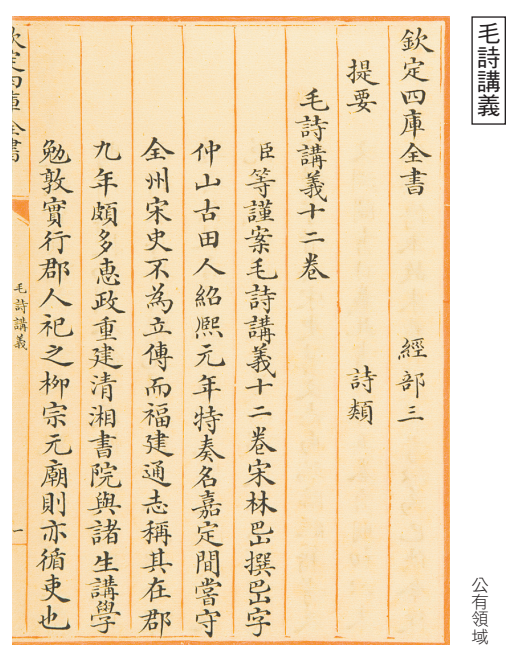 毛詩講義
欽定四庫全書　　　　經部三
提要　　　　　　　　詩類
毛詩講義十二卷
臣等謹案毛詩講義十二卷宋林岊撰岊字
仲山古田人紹熙元年特奏名嘉定間嘗守
全州宋史不為立傳而福建通志稱其在郡
九年頗多惠政重建清湘書院與諸生講學
勉敦實行郡人祀之柳宗元廟則亦循吏也
欽定四庫全書
毛詩講義
一
公有領域